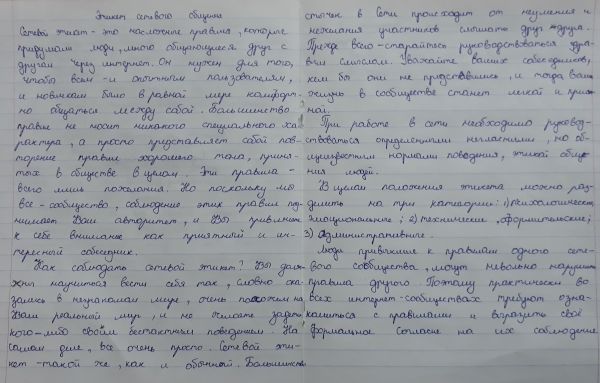 Этикет сетевого общения
Сетевой этикет - это несложные правила, которые
придумали люди, много общающиеся друг с
другом через интернет. Он нужен для того,
чтобы всем - и опытным пользователям,
и новичкам было в равной мере комфорт-
но общаться между собой. большинство
правил не носит никакого специального ха-
рактера, а просто представляет собой пов-
торение правил хорошего тона, приня-
тых в обществе в целом. Эти правила -
всего лишь пожелания. Но поскольку мы
все - сообщество, соблюдение этих правил под-
нимает Ваш авторитет, и Вы привлечёте
к себе внимание как приятный и ин-
тересный собеседник.
Как соблюдать сетевой этикет? Вы долж-
ны научиться вести себя так, словно ока-
зались в незнакомом мире, очень похожем на
Ваш реальный мир, и но хотите задеть
кого-либо своим бестактным поведением. На
самом деле, все очень просто. Сетевой эти-
кет - такой же, как и обычной. Большинство
стычек в Сети происходит от неумения и
нежелания участников слышать друг друга.
Прежде всего - старайтесь руководствоваться здра-
вым смыслом. Уважайте ваших собеседников,
кем бы они не представлялись, и тогда ваша
жизнь в сообществе станет легкой и прият
ной.
При работе в сети необходимо руковод-
ствоваться определенными негласными, но об-
щеизвестными нормами поведения, этикой обще-
ния людей.
В целом положения этикета можно раз-
делить на три категории: 1) психологические,
эмоциональные; 2) технические, оформительские;
3) Административные.
Люди привыкшие к правилам одного сете-
вого сообщества, могут невольно нарушить
правила другого. Поэтому практически во
всех интернет-сообществах требуют озна-
комиться с правилами и выразить своё
формальное согласие на их соблюдение